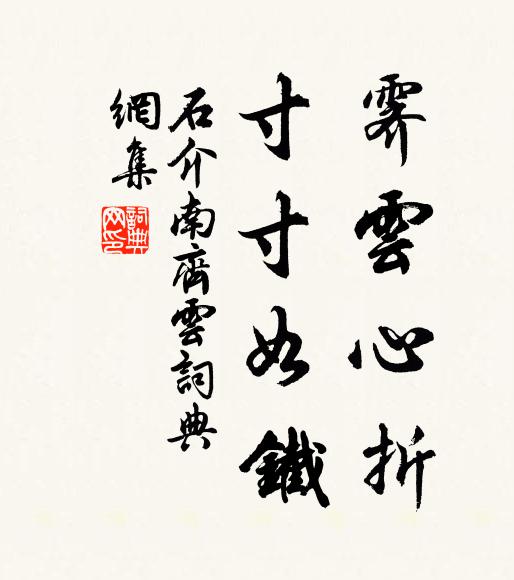 霽雲心折
寸寸如鐵
石介南齊雲詞典
網集
詞典
网印